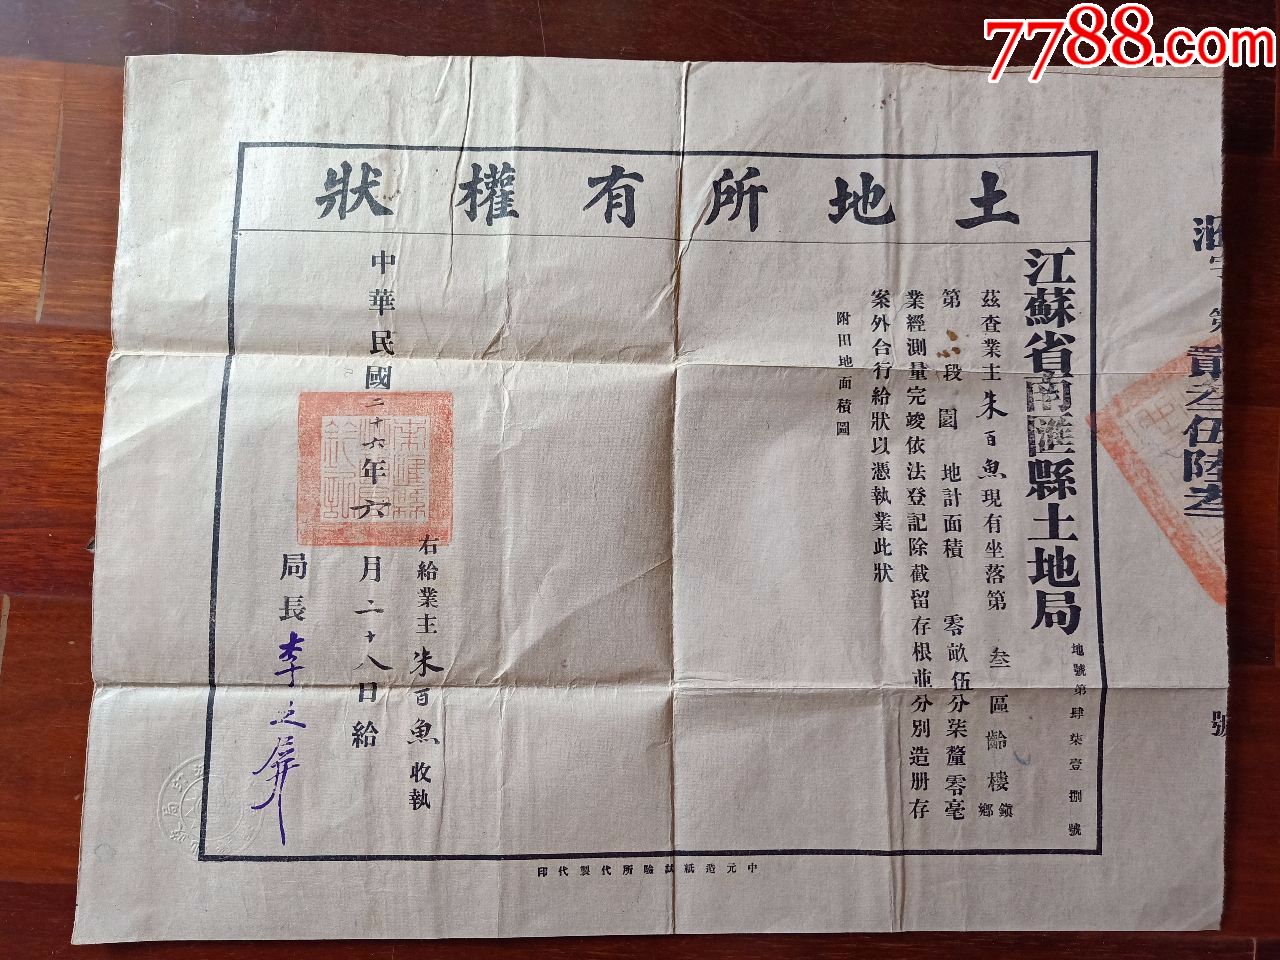 7788.com
土地所有權狀
第貳叁伍陸叁號
江蘇省南匯縣土地局
地號第肆柒壹捌號
茲查業主朱百魚現有坐落第叁區齡樓鎮鄉
第六段園地計面積零畝伍分柒釐零毫
業經測量完竣依法登記除截留存根並分別造册存
案外合行給狀以憑執業此狀
附田地面積圖
右給業主朱百魚收執
中華民國二十六年六月二十八日給
局長李之屏
中元造紙試驗所代製代印